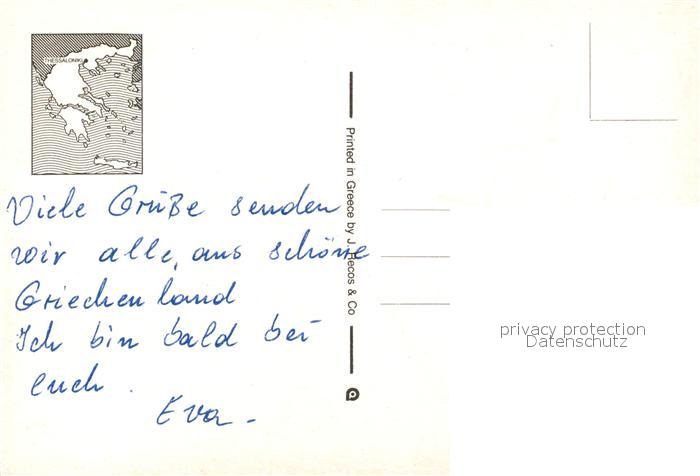 THESSALONIKI
Viele Grüße senden
wir alle, aus schöne
Griechenland
Ich bin bald bei
euch.
Eva -
Printed in Greece by J. Recos & Co
privacy protection
Datenschutz